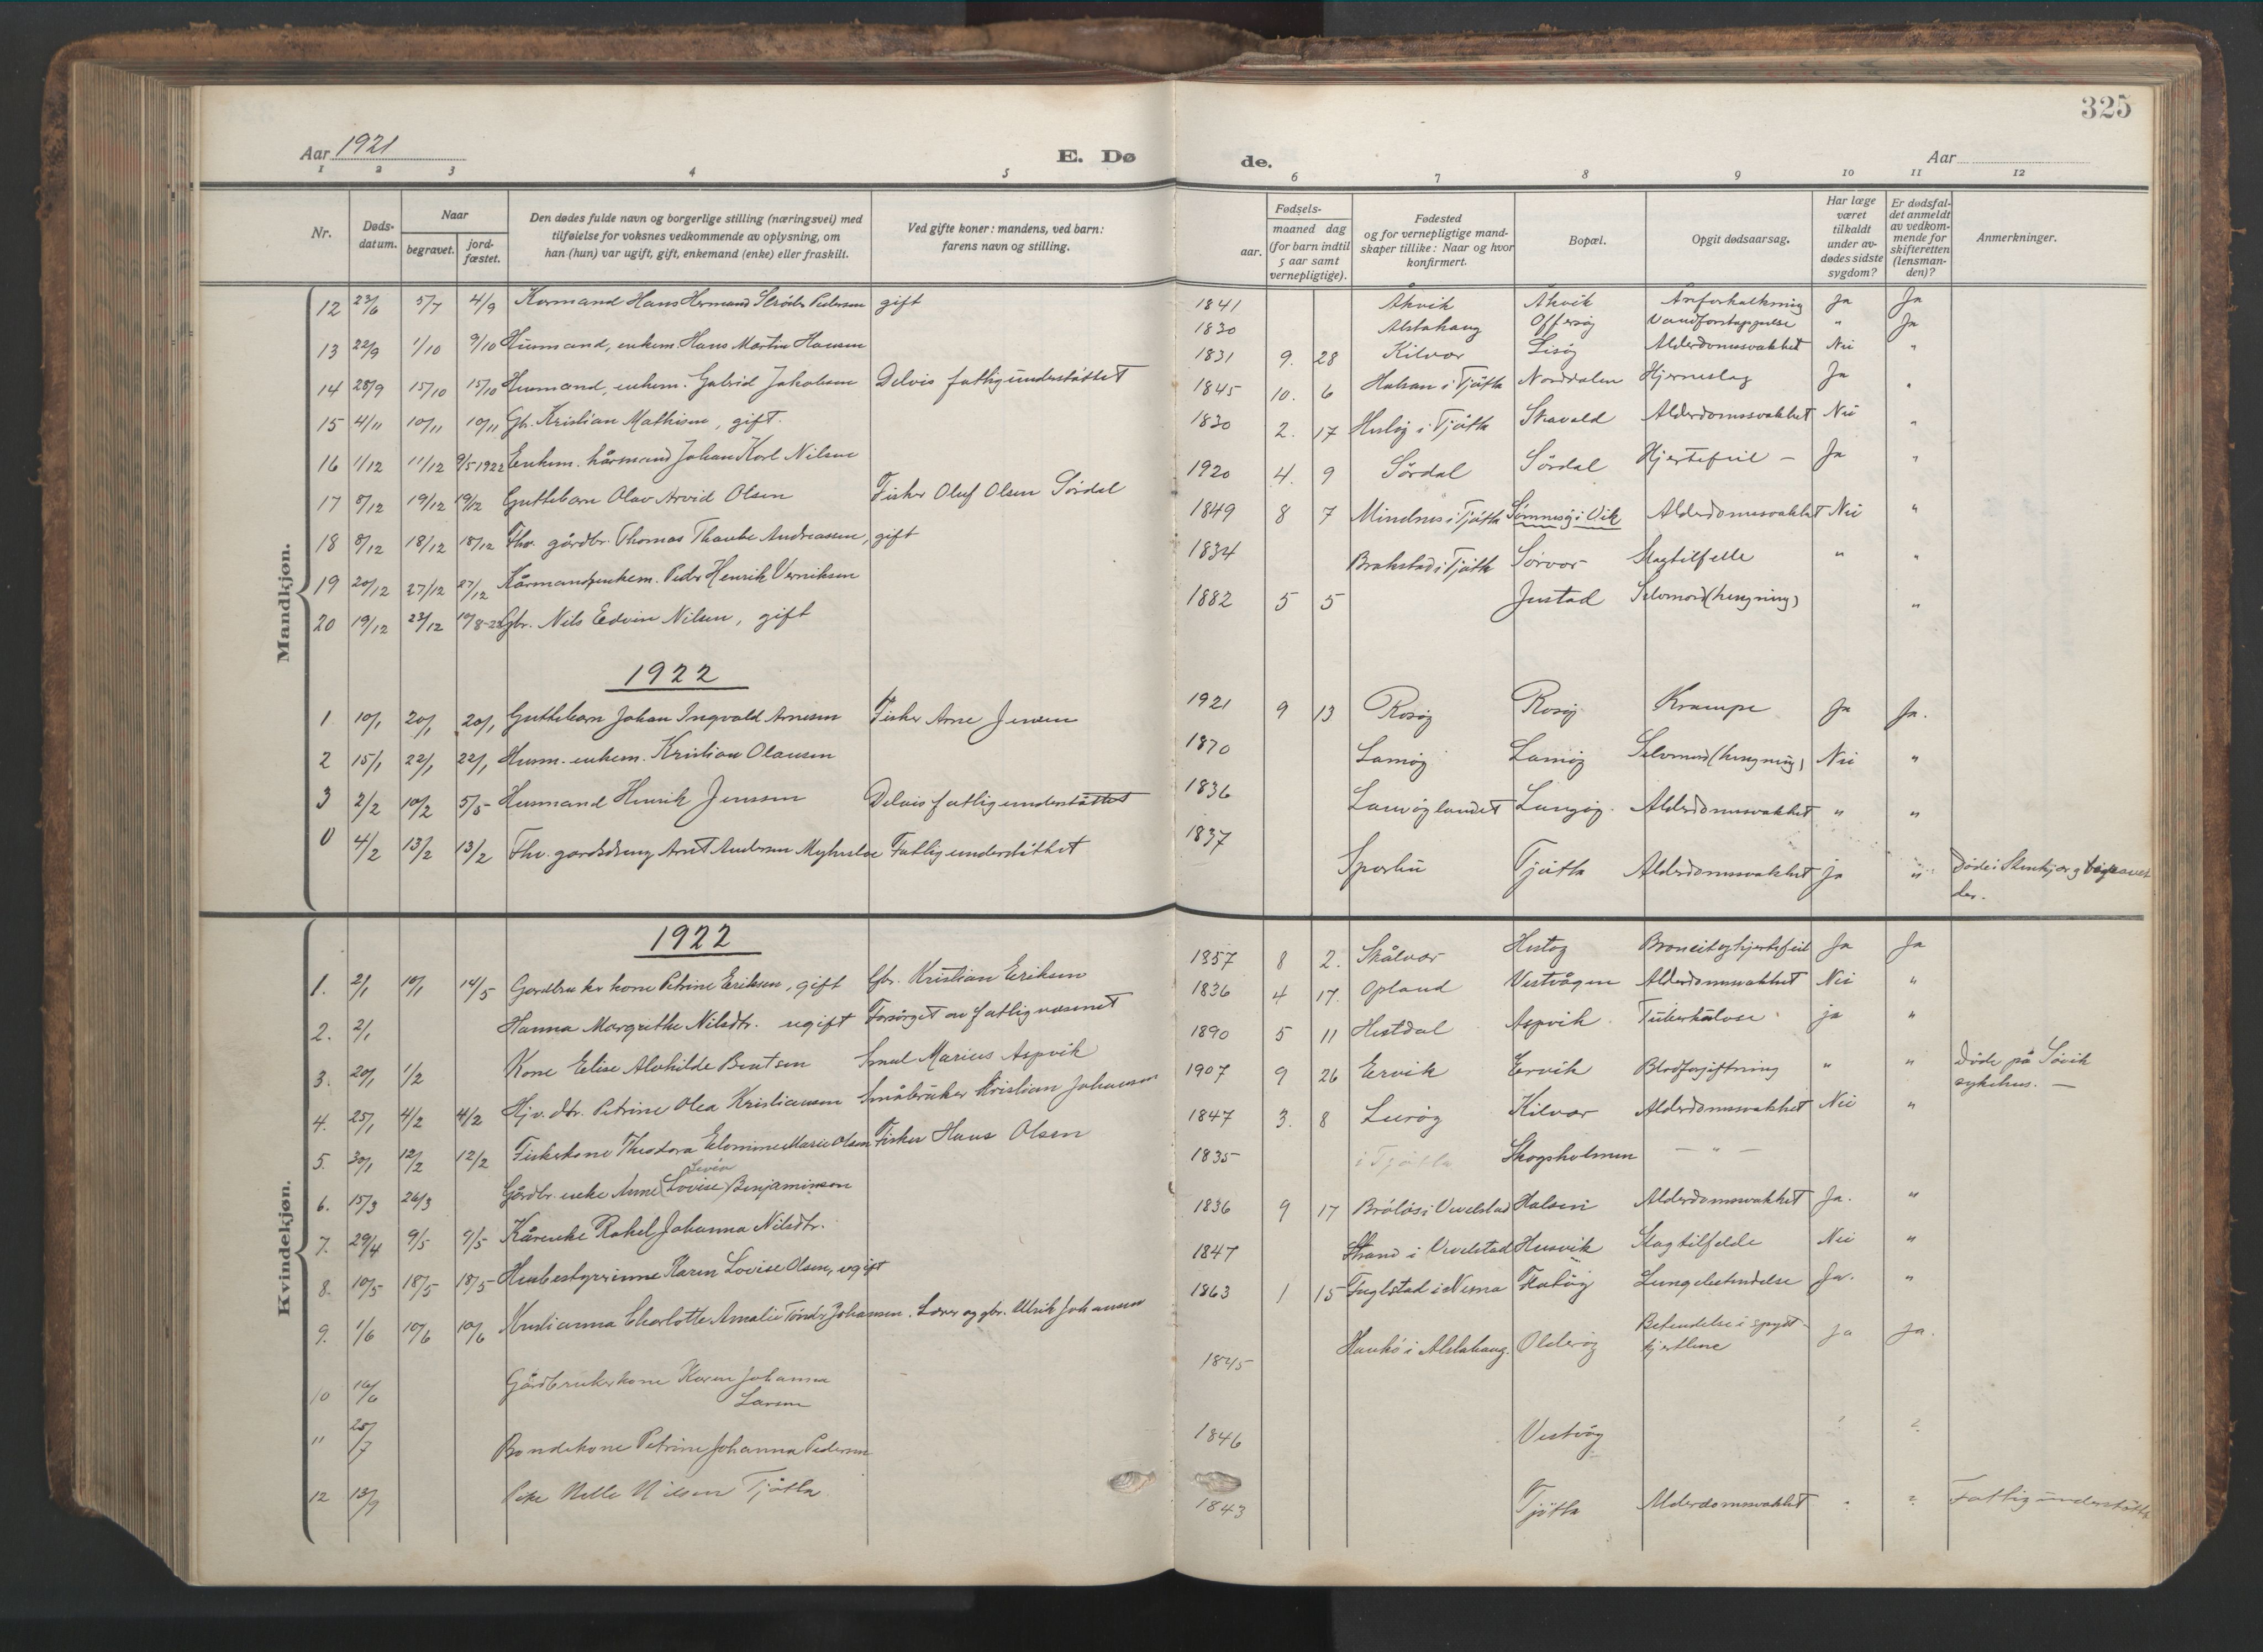 325
Aar 1921
E. Dø
de.
Aar
1 2 3 4 5 6 7 8 9 10 11 12
Nr.
Døds-
datum.
Naar
begravet.
jord-
fæstet.
Den dødes fulde navn og borgerlige stilling (næringsvei) med
tilføielse for voksnes vedkommende av oplysning, om
han (hun) var ugift, gift, enkemand (enke) eller fraskilt.
Ved gifte koner: mandens, ved barn:
farens navn og stilling.
Fødsels-
aar.
maaned dag
(for barn indtil
5 aar samt
vernepligtige).
Fødested
og for vernepligtige mand-
skaper tillike: Naar og hvor
konfirmert.
Bopæl.
Opgit dødsaarsag.
Har læge
været
tilkaldt
under av-
dødes sidste
sygdom?
Er dødsfal-
det anmeldt
av vedkom-
mende for
skifteretten
(lensman-
den)?
Anmerkninger.
Mandkjøn.
12 23/6 5/7 4/9 Kormand Hans Hermand Pedersen gift 1841 Åkvik Åkvik Åreforkalkning Ja Ja
13 22/9 1/10 9/10 Husmand, enkem. Hans Martin Hansen 1830 Alstahaug Offersøy Vandforstoppelse " Ja
14 28/9 15/10 15/10 Husmand, enkem. Gabriel Jakobsen Delvis fattigunderstøttet 1831 9. 28 Kilvær Alderdomssvakhet Nei "
15 4/11 10/11 10/11 Gb. Kristian Mathisen, gift. 1845 10. 6 i Tjøtta Norddalen Hjerneslag Ja "
16 1/12 11/12 9/5 1922 Enkem. kårmand Johan Karl Nilsen 1830 2. 17 i Tjøtta Alderdomssvakhet Nei "
17 8/12 19/12 19/12 Guttebarn Olav Arvid Olsen Fisker Oluf Olsen Sørdal 1920 4. 9 Sørdal Sørdal Hjertefeil – Ja "
18 8/12 18/12 18/12 Fhv. gårdbr. Thomas Thaube Andreassen, gift 1849 8 7 Mindnes i Tjøtta Sømnesø i Vik Alderdomssvakhet Nei "
19 20/12 27/12 27/12 Kårmand, enkem. Peder Henrik Verniksen 1834 Brakstad i Tjøtta Sørvær Slagtilfelle " "
20 19/12 23/12 19/8-22 Gbr. Nils Edvin Nilsen, gift 1882 5 5 Justad Selvmord (hengning) "
1922
1 10/1 20/1 20/1 Guttebarn Johan Ingvald Arnesen Fisker Arne Jensen 1921 9 13 Rosøy Rosøy Krampe Ja Ja.
2 15/1 22/1 22/1 Husm. enkem. Kristian Olausen 1870 Lamøy Lamøy Selvmord (hengning) Nei "
3 2/2 10/2 5/5 Husmand Henrik Jenssen Delvis fattigunderstøttet 1836 Alderdomssvakhet " "
0 4/2 13/2 13/2 Fhv. gardsdreng Arnt Andersen Fattigunderstøttet 1837 Tjøtta Alderdomssvakhet Ja " Døde i Stenkjær og begravet
der.
Kvindekjøn.
1922
1. 2/1 10/1 14/5 Gardbruker kone Petrine Eriksen, gift Gbr. Kristian Eriksen 1857 8 2. Skålvær Hestøy Broncit og hjertefeil Ja Ja
2. 2/1 Hanna Margrethe Nilsdtr. ugift Forsørget av fattigvæsenet 1836 4 17. Opland Vestvågen Alderdomssvakhet Nei "
3. 20/1 1/2 Kone Elise Alvhilde Bentsen Marius Aspvik 1890 5 11 Hestdal Aspvik Tuberkulose ja "
4. 25/1 4/2 4/2 Hjv. dtr. Petrine Olea Kristiansen Småbruker Kristian Johansen 1907 9 26 Ervik Ervik Blodforgiftning " " Døde på Søvik
sykehus. –
5. 30/1 12/2 12/2 Fiskerkone Theodora Marie Olsen Fisker Hans Olsen 1847 3. 8 Lurøy Kilvær Alderdomssvakhet Nei "
6. 15/3 26/3 Gårdbr. enke Anne Lovise Benjaminsen 1835 i Tjøtta Skogsholmen – " –
7. 29/4 9/5 9/5 Kårenke Rakel Johanna Nilsdtr. 1836 9 17 i Vevelstad Halsen Alderdomssvakhet Ja. "
8. 10/5 18/5 18/5 Husbestyrerinne Karen Lovise Olsen, ugift 1847 Strand i Vevelstad Husvik Slagtilfelde Nei "
9. 1/6 10/6 10/6 Kristianna Charlotte Amalie Tønder Johansen. Lærer og gbr. Ulrik Johansen 1863 1 15 Fuglstad i Nesna Lungebetendelse Ja. "
10 16/6 Gårdbrukerkone Karen Johanna
Larsen 1845 i Alstahaug. Olderøy Betendelse i spyt-
kjertlene ja ja.
" 25/7 Bondekone Petrine Johanna Pedersen 1846 Vestvåg
12 13/9 Pike Nelle Nilsen Tjøtta 1843 Tjøtta Alderdomssvakhet Fattigunderstøttet